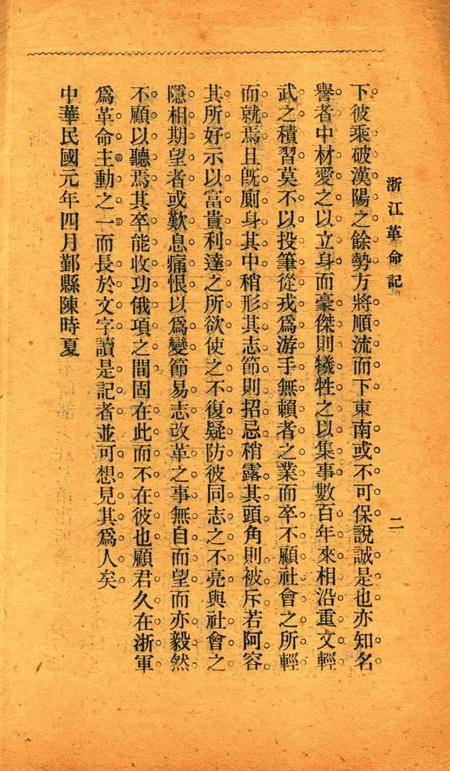 浙江革命記
二
下彼乘破漢陽之餘勢方將順流而下東南或不可保說誠是也亦知名
譽者中材愛之以立身而豪傑則犧牲之以集事數百年來相沿重文輕
武之積習莫不以投筆從戎爲游手無賴者之業而卒不顧社會之所輕
而就焉且旣廁身其中稍形其志節則招忌稍露其頭角則被斥若阿容
其所好示以富貴利達之所欲使之不復疑防彼同志之不亮與社會之
隱相期望者或歎息痛恨以爲變節易志改革之事無自而望而亦毅然
不顧以聽焉其卒能收功俄頃之間固在此而不在彼也顧君久在浙軍
爲革命主動之一而長於文字讀是記者並可想見其爲人矣
中華民國元年四月鄞縣陳時夏